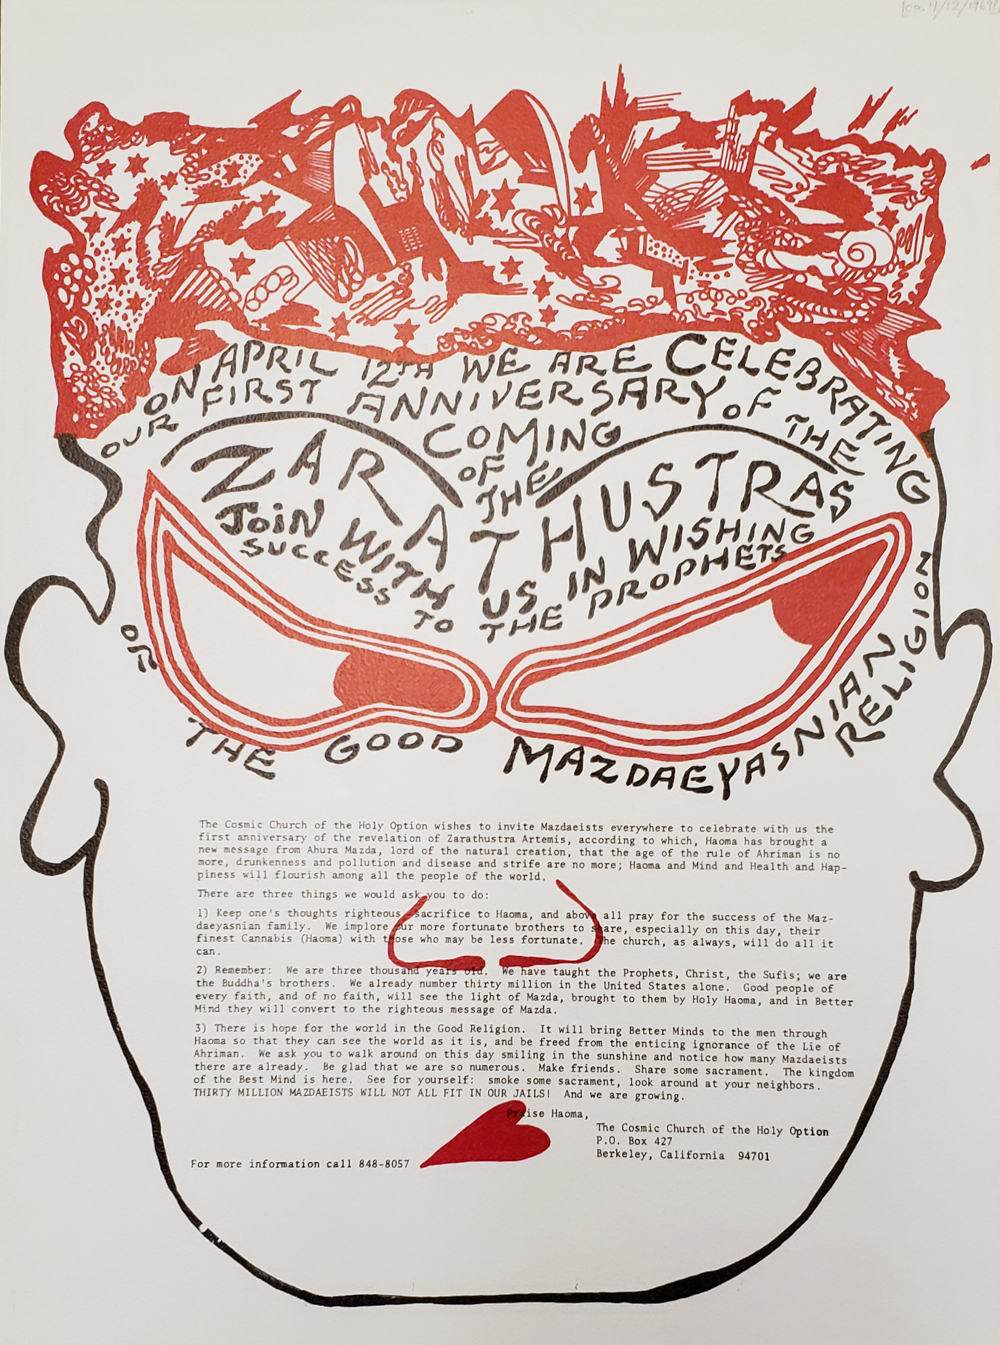 [ca. 4/12/1969]
ON APRIL 12TH WE ARE CELEBRATING
OUR FIRST ANNIVERSARY OF THE
COMING
OF
THE
ZARATHUSTRAS
JOIN WITH US IN WISHING
SUCCESS TO THE PROPHETS
OF THE GOOD MAZDAEYASNIAN RELIGION
The Cosmic Church of the Holy Option wishes to invite Mazdaeists everywhere to celebrate with us the
first anniversary of the revelation of Zarathustra Artemis, according to which, Haoma has brought a
new message from Ahura Mazda, lord of the natural creation, that the age of the rule of Ahriman is no
more, drunkenness and pollution and disease and strife are no more; Haoma and Mind and Health and Hap-
piness will flourish among all the people of the world.
There are three things we would ask you to do:
1) Keep one's thoughts righteous, sacrifice to Haoma, and above all pray for the success of the Maz-
daeyasnian family. We implore our more fortunate brothers to share, especially on this day, their
finest Cannabis (Haoma) with those who may be less fortunate. The church, as always, will do all it
can.
2) Remember: We are three thousand years old. We have taught the Prophets, Christ, the Sufis; we are
the Buddha's brothers. We already number thirty million in the United States alone. Good people of
every faith, and of no faith, will see the light of Mazda, brought to them by Holy Haoma, and in Better
Mind they will convert to the righteous message of Mazda.
3) There is hope for the world in the Good Religion. It will bring Better Minds to the men through
Haoma so that they can see the world as it is, and be freed from the enticing ignorance of the Lie of
Ahriman. We ask you to walk around on this day smiling in the sunshine and notice how many Mazdaeists
there are already. Be glad that we are so numerous. Make friends. Share some sacrament. The kingdom
of the Best Mind is here. See for yourself: smoke some sacrament, look around at your neighbors.
THIRTY MILLION MAZDAEISTS WILL NOT ALL FIT IN OUR JAILS! And we are growing.
Praise Haoma,
The Cosmic Church of the Holy Option
P.O. Box 427
Berkeley, California 94701
For more information call 848-8057